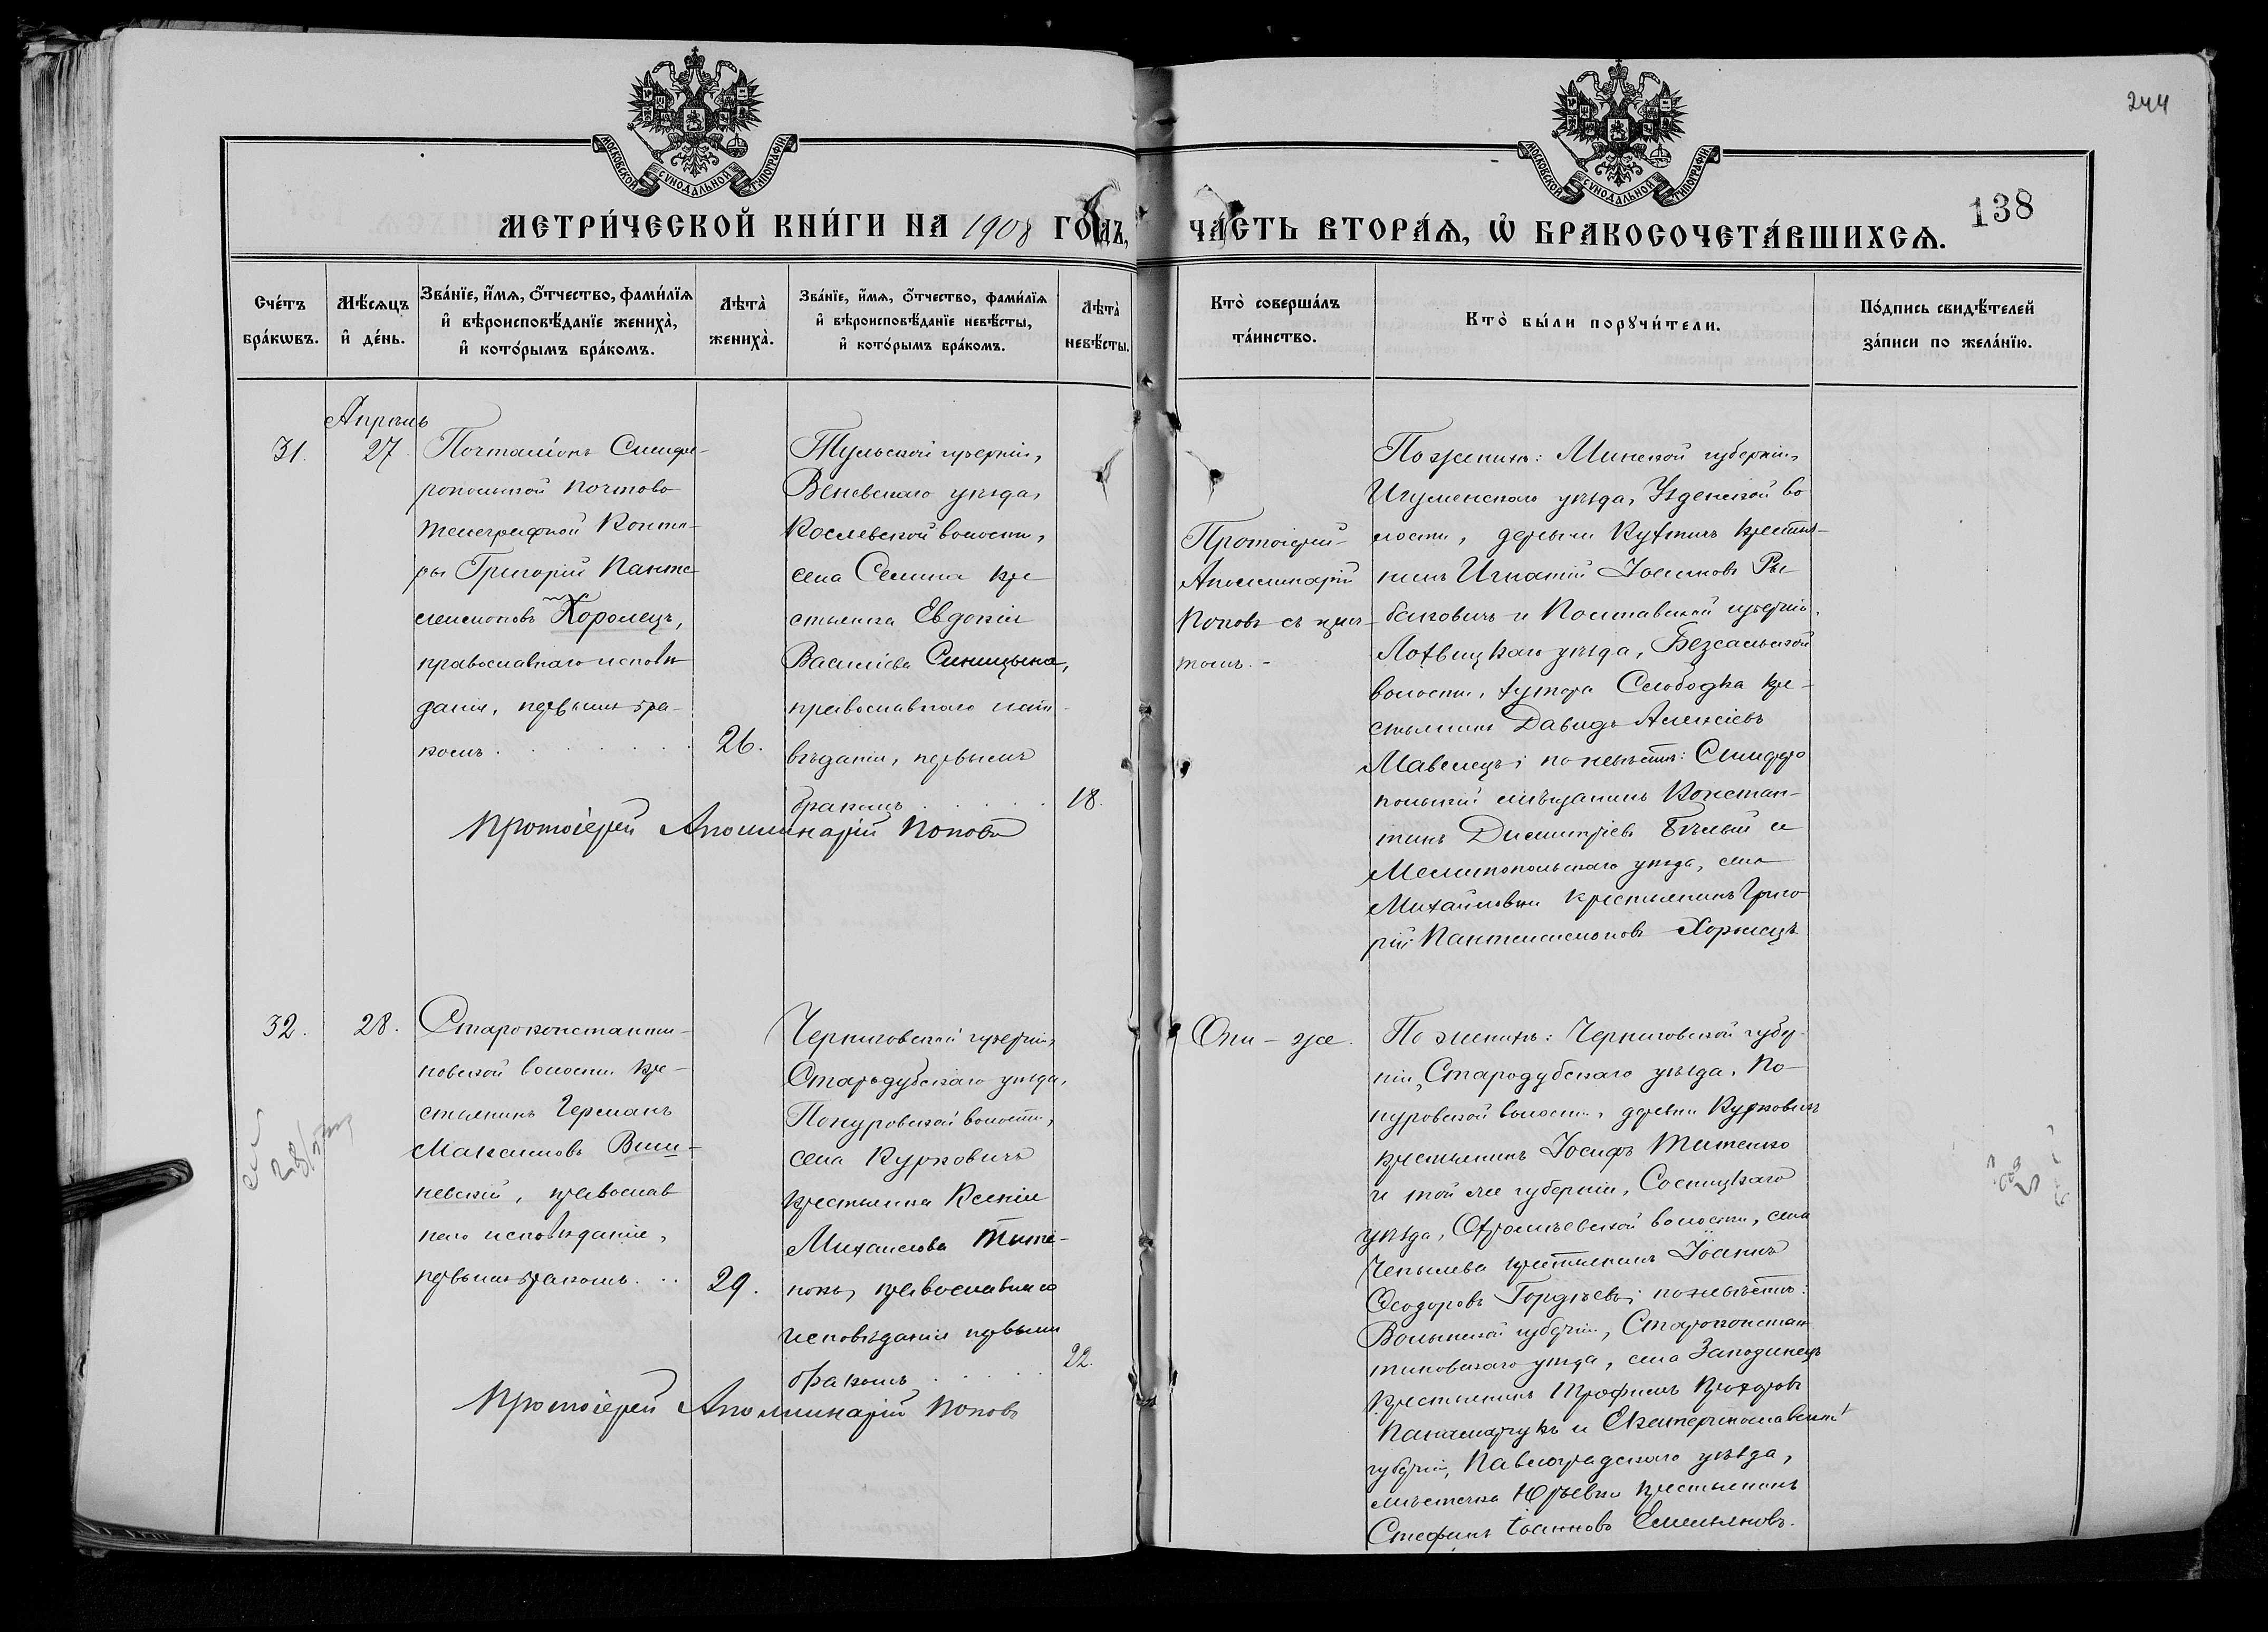 244
138
МОСКОВСКОЙ СѴНОДАЛЬНОЙ ТИПОГРАФІИ
МОСКОВСКОЙ СѴНОДАЛЬНОЙ ТИПОГРАФІИ
МЕТРИ́ЧЕСКОЙ КНИ́ГИ НА 1908 ГОДЪ,
ЧА́СТЬ ВТОРА́Ѧ, Ѡ БРАКОСОЧЕТА́ВШИХСѦ.
Сче́тъ
бра́кѡвъ.
Мѣ́сѧцъ
и҆ де́нь.
Зва́нїе, и҆́мѧ, ѻ҆́тчество, фами́лїѧ
и҆ вѣроисповѣ́данїе жениха̀,
и҆ кото́рымъ бра́комъ.
Лѣта̀
жениха̀.
Зва́нїе, и҆́мѧ, ѻ҆́тчество, фами́лїѧ
и҆ вѣроисповѣ́данїе невѣ́сты,
и҆ кото́рымъ бра́комъ.
Лѣта̀
невѣ́сты.
Кто̀ соверша́лъ
та́инство.
Кто̀ бы́ли порꙋчи́тели.
По́дпись свидѣ́телей
за́писи по жела́нїю.
Апрѣль
31.
27.
Почталіонъ Симфе-
ропольской почтово
телеграфной Конто-
ры Григорій Панте
леимоновъ Хоролецъ,
православнаго исповѣ
данія, первымъ бра-
комъ.
26.
Тульской губерніи,
Веневскаго уѣзда,
волости,
села кре
стьянка Евдокія
Василіева Синицына,
православнаго испо-
вѣданія, первымъ
бракомъ
18.
Протоіерей Аполлинарій Поповъ
Протоіерей
Аполлинарій
Поповъ съ прич-
томъ.-
По женихѣ: Минской губерніи,
Игуменскаго уѣзда, Узденской во
лости, деревни крестья-
нинъ Игнатій Іоанновъ Ры
баковичъ и Полтавской губерніи,
Лохвицкаго уѣзда, Безсальской
волости, хутора Слободка кре-
стьянинъ Давидъ Алексіевъ
Мавлецъ; по невѣстѣ: Симферо
польскій мѣщанинъ Констан-
тинъ Димитріевъ Бѣлый и
Мелитопольскаго уѣзда, села
Михайловки крестьянинъ Григо
рій Пантелеимоновъ Хоролецъ
32.
28.
Староконстанти-
новской волости кре-
стьянинъ Германъ
Максимовъ Виш-
невскій, православ
наго исповѣданія,
первымъ бракомъ. . .
29.
Черниговской губерніи,
Стародубскаго уѣзда,
Понуровской волости,
села Курковичъ
крестьянка Ксенія
Михаилова Тите-
нокъ, православнаго
исповѣданія первымъ
бракомъ
22.
Протоіерей Аполлинарій Поповъ
Они-же.
По женихѣ: Черниговской губер-
ніи, Стародубскаго уѣзда, По-
нуровской волости, деревни Курковичъ
крестьянинъ Іосифъ Титенко
и той же губерніи, Сосницкаго
уѣзда, волости, села
крестьянинъ Іоаннъ
Ѳеодоровъ Гордѣевъ; по невѣстѣ:
Волынской губерніи, Староконстан
тиновскаго уѣзда, села Западинецъ
крестьянинъ Трофимъ Прохоровъ
Панамарчукъ и Екатеринославской
губерніи, Павлоградскаго уѣзда,
мѣстечка Юрьевки крестьянинъ
Стефанъ Іоанновъ Емельяновъ.